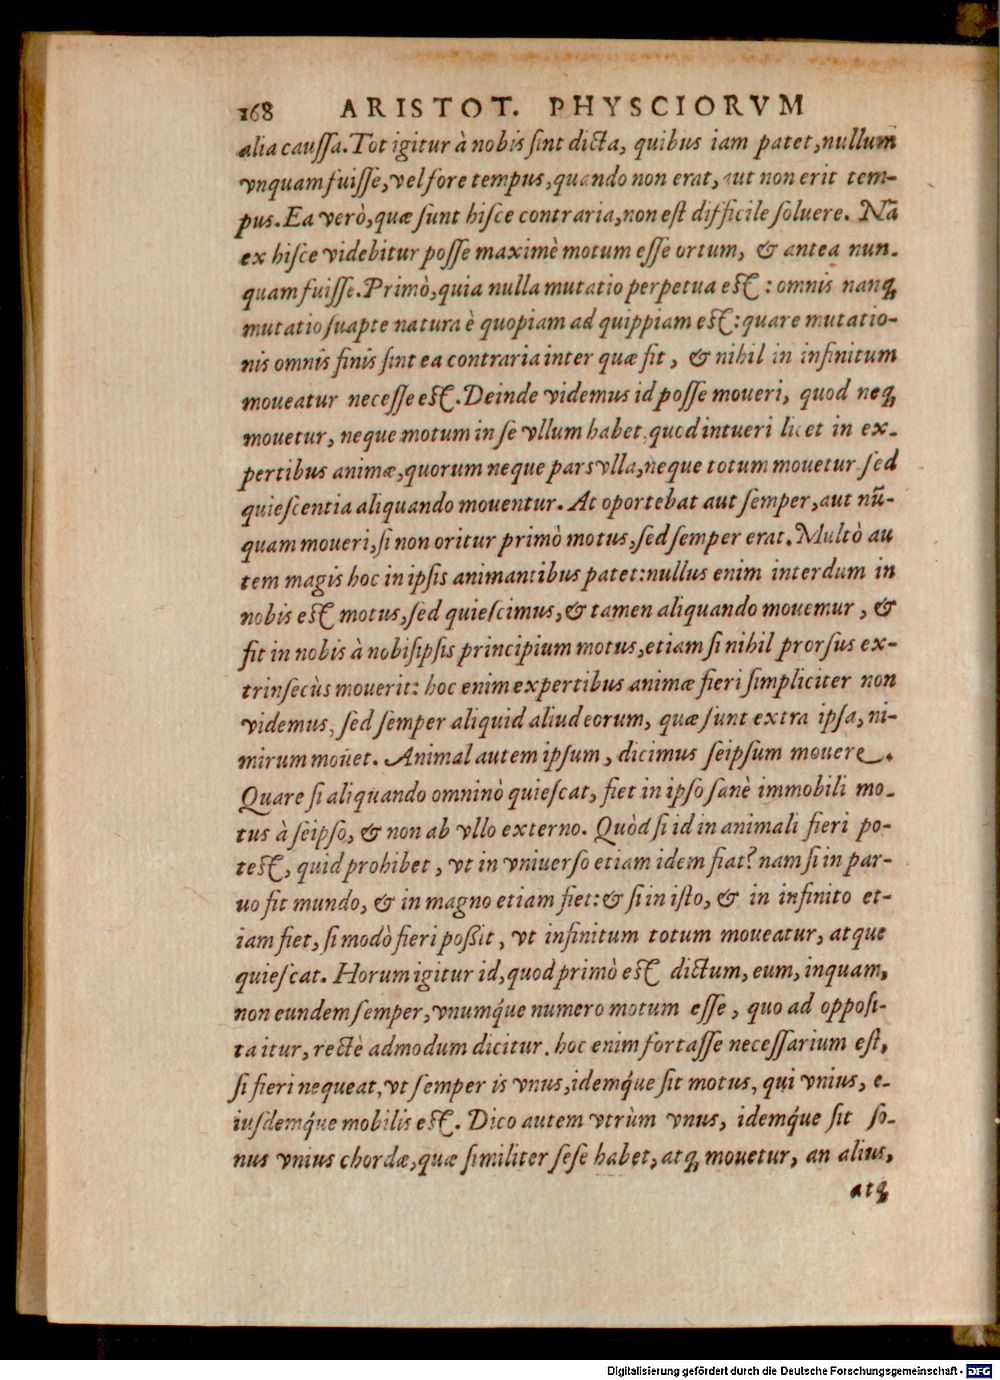 168 ARISTOT. PHYSCIORVM
alia caussa. Tot igitur à nobis sint dicta, quibus iam patet, nullum
vnquam fuisse, vel fore tempus, quando non erat, aut non erit tem-
pus. Ea verò, quæ sunt hisce contraria, non est difficile soluere. Nā
ex hisce videbitur posse maximè motum esse ortum, & antea nun-
quam fuisse. Primò, quia nulla mutatio perpetua est: omnis nanq;
mutatio suapte natura è quopiam ad quippiam est: quare mutatio-
nis omnis finis sint ea contraria inter quæ fit, & nihil in infinitum
moueatur necesse est. Deinde videmus id posse moueri, quod neq;
mouetur, neque motum in se vllum habet, quod intueri licet in ex-
pertibus animæ, quorum neque pars vlla, neque totum mouetur sed
quiescentia aliquando mouentur. At oportebat aut semper, aut nū-
quam moueri, si non oritur primò motus, sed semper erat. Multò au
tem magis hoc in ipsis animantibus patet: nullus enim interdum in
nobis est motus, sed quiescimus, & tamen aliquando mouemur, &
fit in nobis à nobisipsis principium motus, etiam si nihil prorsus ex-
trinsecùs mouerit: hoc enim expertibus animæ fieri simpliciter non
videmus, sed semper aliquid aliud eorum, quæ sunt extra ipsa, ni-
mirum mouet. Animal autem ipsum, dicimus seipsum mouere.
Quare si aliquando omninò quiescat, fiet in ipso sanè immobili mo-
tus à seipso, & non ab vllo externo. Quòd si id in animali fieri po-
test, quid prohibet, vt in vniuerso etiam idem fiat? nam si in par-
uo fit mundo, & in magno etiam fiet: & si in isto, & in infinito et-
iam fiet, si modò fieri poßit, vt infinitum totum moueatur, atque
quiescat. Horum igitur id, quod primò est dictum, eum, inquam,
non eundem semper, vnumq́ue numero motum esse, quo ad opposi-
ta itur, rectè admodum dicitur. hoc enim fortasse necessarium est,
si fieri nequeat, vt semper is vnus, idemq́ue sit motus, qui vnius, e-
iusdemq́ue mobilis est. Dico autem vtrùm vnus, idemq́ue sit so-
nus vnius chordæ, quæ similiter sese habet, atq; mouetur, an alius,
atq;
Digitalisierung gefördert durch die Deutsche Forschungsgemeinschaft - DFG